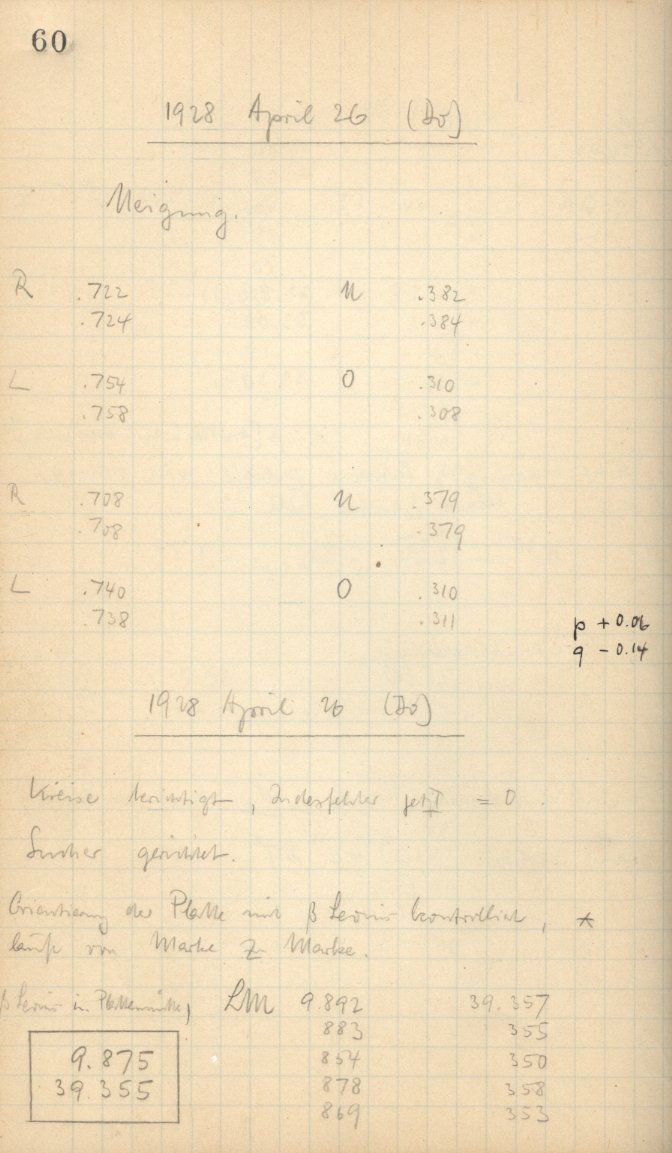 60
1928 April 26 (Do)
Neigung.
R .722 U .382
.724 .384
L .754 O .310
.758 .308
R .708 U .379
.708 .379
L .740 O .310
.738 .311
p + 0.06
q - 0.14
1928 April 26 (Do)
Kreise berichtigt, Indexfehler jetzt = 0.
Sucher gerichtet.
Orientierung der Platte mit β Leonis kontrolliert, *
läuft von Marke zu Marke.
β Leonis in Plattenmitte, LM 9.892 39.357
883 355
9.875 854 350
39.355 878 358
869 353